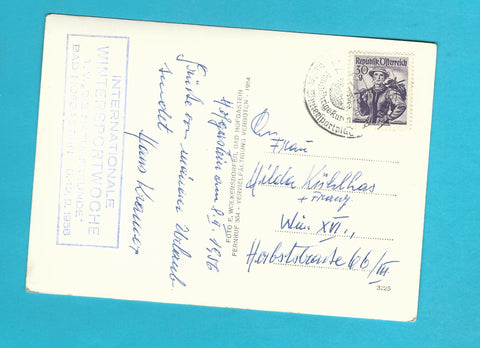 INTERNATIONALE
WINTERSPORTWOCHE
BAD HOFGASTEIN
Hofgastein am 8.II.1956
Grüße von meinem Urlaub
sendet
Hans Kramer
FOTO F. WOLKERSDORFER, BAD HOFGASTEIN
FERNRUF 364 - VERVIELFÄLTIGUNG VERBOTEN - 1954
Republik Österreich
30
An
Frau
Hilda Köhlhas
+ Franz
Wien XVI.,
Herbststrasse 66/III
3225